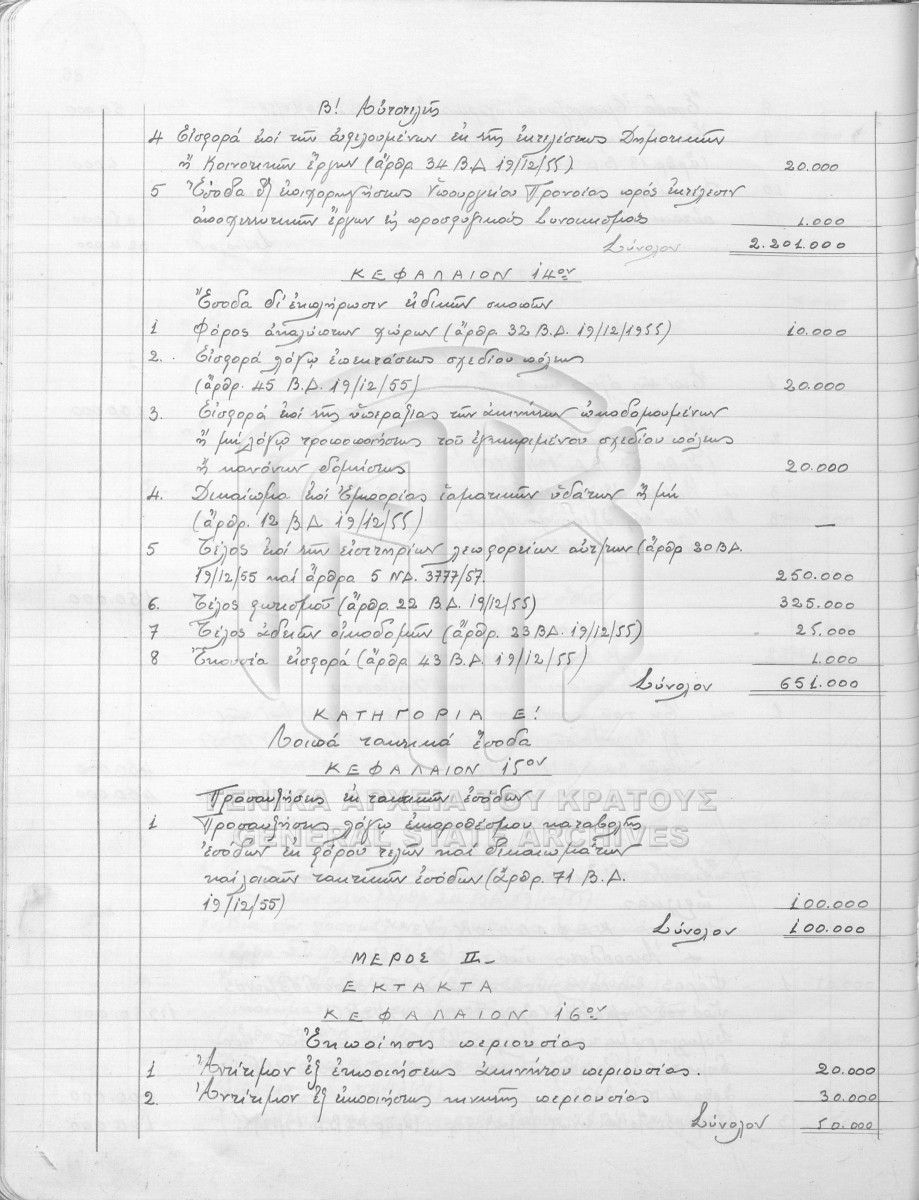 Β! Αὐτοτελής
4 Εἰσφορά ἐπί τῶν ὠφελουμένων ἐκ τῆς ἐκτελέσεως Δημοτικῶν
ἤ Κοινοτικῶν ἔργων (ἄρθρ. 34 Β.Δ 19/12/55) 20.000
5 Ἔσοδα ἐξ ἐπιχορηγήσεως Ὑπουργείου Προνοίας πρός ἐκτέλεσιν
ἀποχετευτικῶν ἔργων εἰς προσφυγικούς Συνοικισμούς 1.000
Σύνολον 2.201.000
ΚΕΦΑΛΑΙΟΝ 14ον
Ἔσοδα δι' ἐκπλήρωσιν εἰδικῶν σκοπῶν
1 Φόρος ἀκαλύπτων χώρων (ἄρθρ. 32 Β.Δ. 19/12/1955) 10.000
2. Εἰσφορά λόγῳ ἐπεκτάσεως σχεδίου πόλεως
(ἄρθρ. 45 Β.Δ. 19/12/55) 20.000
3. Εἰσφορά ἐπί τῆς ὑπεραξίας τῶν ἀκινήτων ᾠκοδομουμένων
ἤ μή λόγῳ τροποποιήσεως τοῦ ἐγκεκριμένου σχεδίου πόλεως
ἤ κανόνων δομήσεως 20.000
4. Δικαίωμα ἐπί Ἐμπορίας ἰαματικῶν ὑδάτων ἤ μή
(ἄρθρ. 12 Β.Δ 19/12/55) —
5 Τέλος ἐπί τῶν εἰσιτηρίων λεωφορείων αὐτ/των (ἄρθρ 20 Β.Δ.
19/12/55 καί ἄρθρα 5 Ν.Δ. 3777/57. 250.000
6. Τέλος φωτισμοῦ (ἄρθρ. 22 Β.Δ. 19/12/55) 325.000
7 Τέλος ἀδειῶν οἰκοδομῶν (ἄρθρ. 23 Β.Δ. 19/12/55) 25.000
8 Ἑκουσία εἰσφορά (ἄρθρ. 43 Β.Δ. 19/12/55) 1.000
Σύνολον 651.000
ΚΑΤΗΓΟΡΙΑ Ε!
Λοιπά τακτικά ἔσοδα
ΚΕΦΑΛΑΙΟΝ 15ον
Προσαυξήσεις ἐκ τακτικῶν ἐσόδων
ΓΕΝΙΚΑ ΑΡΧΕΙΑ ΤΟΥ ΚΡΑΤΟΥΣ
1 Προσαυξήσεις λόγῳ ἐκπροθέσμου καταβολῆς
GENERAL STATE ARCHIVES
ἐσόδων ἐκ φόρου τελῶν καί δικαιωμάτων
καί λοιπῶν τακτικῶν ἐσόδων (ἄρθρ. 71 Β.Δ.
19/12/55) 100.000
Σύνολον 100.000
ΜΕΡΟΣ ΙΙ-
ΕΚΤΑΚΤΑ
ΚΕΦΑΛΑΙΟΝ 16ον
Ἐκποίησις περιουσίας
1 Ἀντίτιμον ἐξ ἐκποιήσεως ἀκινήτου περιουσίας. 20.000
2. Ἀντίτιμον ἐξ ἐκποιήσεως κινητῆς περιουσίας 30.000
Σύνολον 50.000